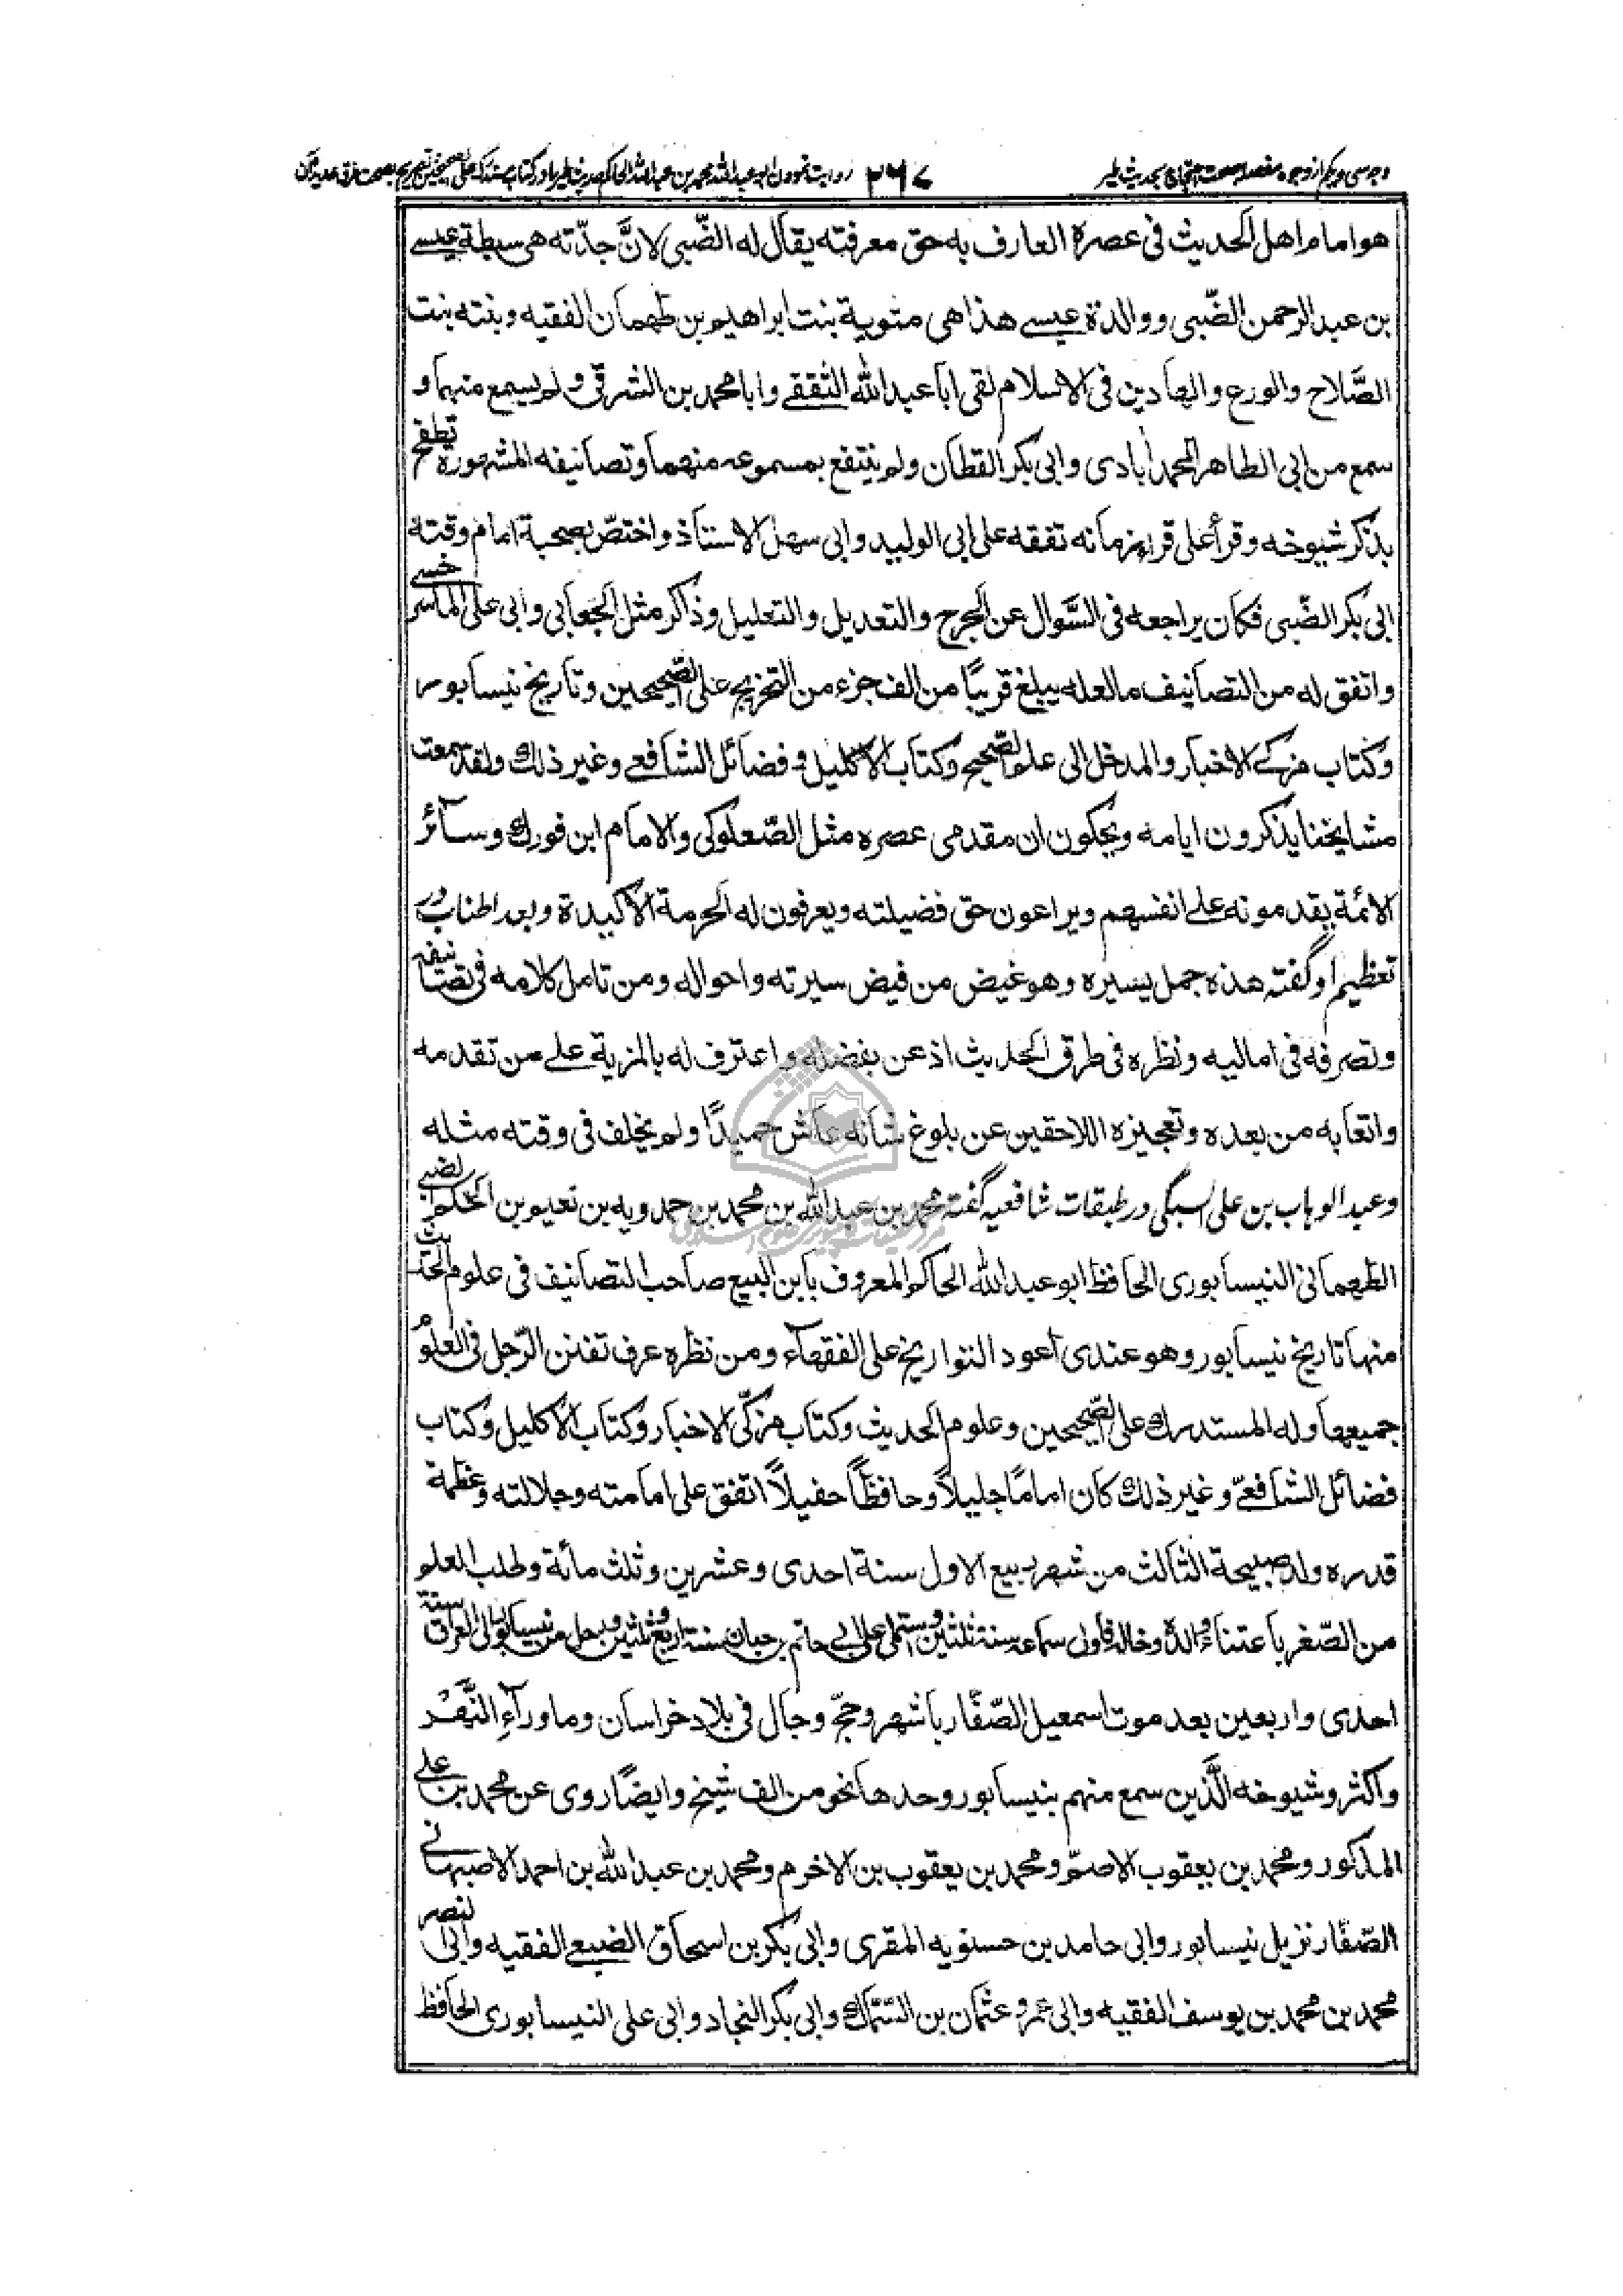 وجه سی و یکم از وجوه مفصله صحت احتجاج بحدیث طیر ۲۶۷ روایت نمودن ابو عبدالله محمد بن عبدالله الحاکم حدیث طیر را در کتاب مستدرک علی الصحیحین تصریح بصحت طرق عدیده آن
هو امام اهل الحديث فى عصره العارف به حق معرفته يقال له الضّبى لانّ جدّته هى سبطة عيسے
بن عبد الرحمن الضّبى ووالدة عيسے هذا هى متوية بنت ابراهيم بن طهمان الفقيه وبنته بنت
الصّلاح والورع والعادين فى الاسلام لقى ابا عبد الله الثقفے وابا محمد بن الشرقى ولم يسمع منهما و
سمع من ابى الطاهر المحمدآبادى وابى بكر القطان ولم ينتفع بمسموعه منهما وتصانيفه المشهورة تطفح
بذكر شيوخه وقرأ على قراء زمانه تفقه على ابى الوليد وابى سهل الاستاذ واختصّ بصحبة امام وقته
ابى بكر الضّبى فكان يراجعه فى السّوال عن الجرح والتعديل والتعليل وذاكر مثل الجعابى وابى على الماسرخسے
واتفق له من التصانيف ما لعله يبلغ قريبًا من الف جزء من التخريج على الصّحيحين وتاريخ نيسابور
وكتاب مزكے الاخبار والمدخل الى علم الصّحيح وكتاب الاكليل وفضائل الشافعے وغير ذلك ولقد سمعت
مشايخنا يذكرون ايامه ويحكون ان مقدمى عصره مثل الصّعلوكى والامام ابن فورك وسآئر
الائمة يقدمونه علے انفسهم ويراعون حق فضيلته ويعرفون له الحرمة الاكيدة وبعد اطناب در
تعظيم او گفته هذه جمل يسيره وهو غيض من فيض سيرته واحواله ومن تامل كلامه فى تصانيفه
وتصرفه فى اماليه ونظره فى طرق الحديث اذعن بفضله واعترف له بالمزية علے من تقدمه
واتعابه من بعده وتعجيزه اللاحقين عن بلوغ شانه عاش حميدًا ولم يخلف فى وقته مثله
وعبد الوهاب بن على السبكى در طبقات شافعيه گفته محمد بن عبد الله بن محمد بن حمدويه بن نعيم بن الحكم الضبے
الطهمانى النيسابورى الحافظ ابو عبد الله الحاكم المعروف بابن البيع صاحب التصانيف فى علوم الحديث
منها تاريخ نيسابور وهو عندى اعود التواريخ على الفقهآء ومن نظره عرف تفنن الرّجل فى العلوم
جميعها وله المستدرك على الصّحيحين وعلوم الحديث وكتاب مزكّى الاخبار وكتاب الاكليل وكتاب
فضائل الشافعےّ وغير ذلك كان امامًا جليلًا وحافظًا حفيلًا اتفق على امامته وجلالته وعظمة
قدره ولد صبيحة الثالث من شهر ربيع الاول سنة احدى وعشرين وثلث مائة وطلب العلم
من الصّغر باعتناء والده وخاله فاول سماعه سنة ثلثين واستملى على ابى حاتم بن حبان سنة اربع وثلثين ورحل من نيسابور الى العراق سنة
احدى واربعين بعد موت اسمعيل الصّفّار باشهر وحجّ وجال فى بلاد خراسان وما ورآء النّهر
واكثر وشيوخه الّذين سمع منهم بنيسابور وحدها نحو من الف شيخ وايضًا روى عن محمد بن علے
المذكور ومحمد بن يعقوب الاصمّ ومحمد بن يعقوب بن الاخرم ومحمد بن عبد الله بن احمد الاصبهانے
الصّفّار نزيل نيسابور وابى حامد بن حسنويه المقرى وابى بكر بن اسحاق الضبعے الفقيه وابى النصر
محمد بن محمد بن يوسف الفقيه وابى عمرو عثمان بن السّمّاك وابى بكر النجاد وابى على النيسابورى الحافظ